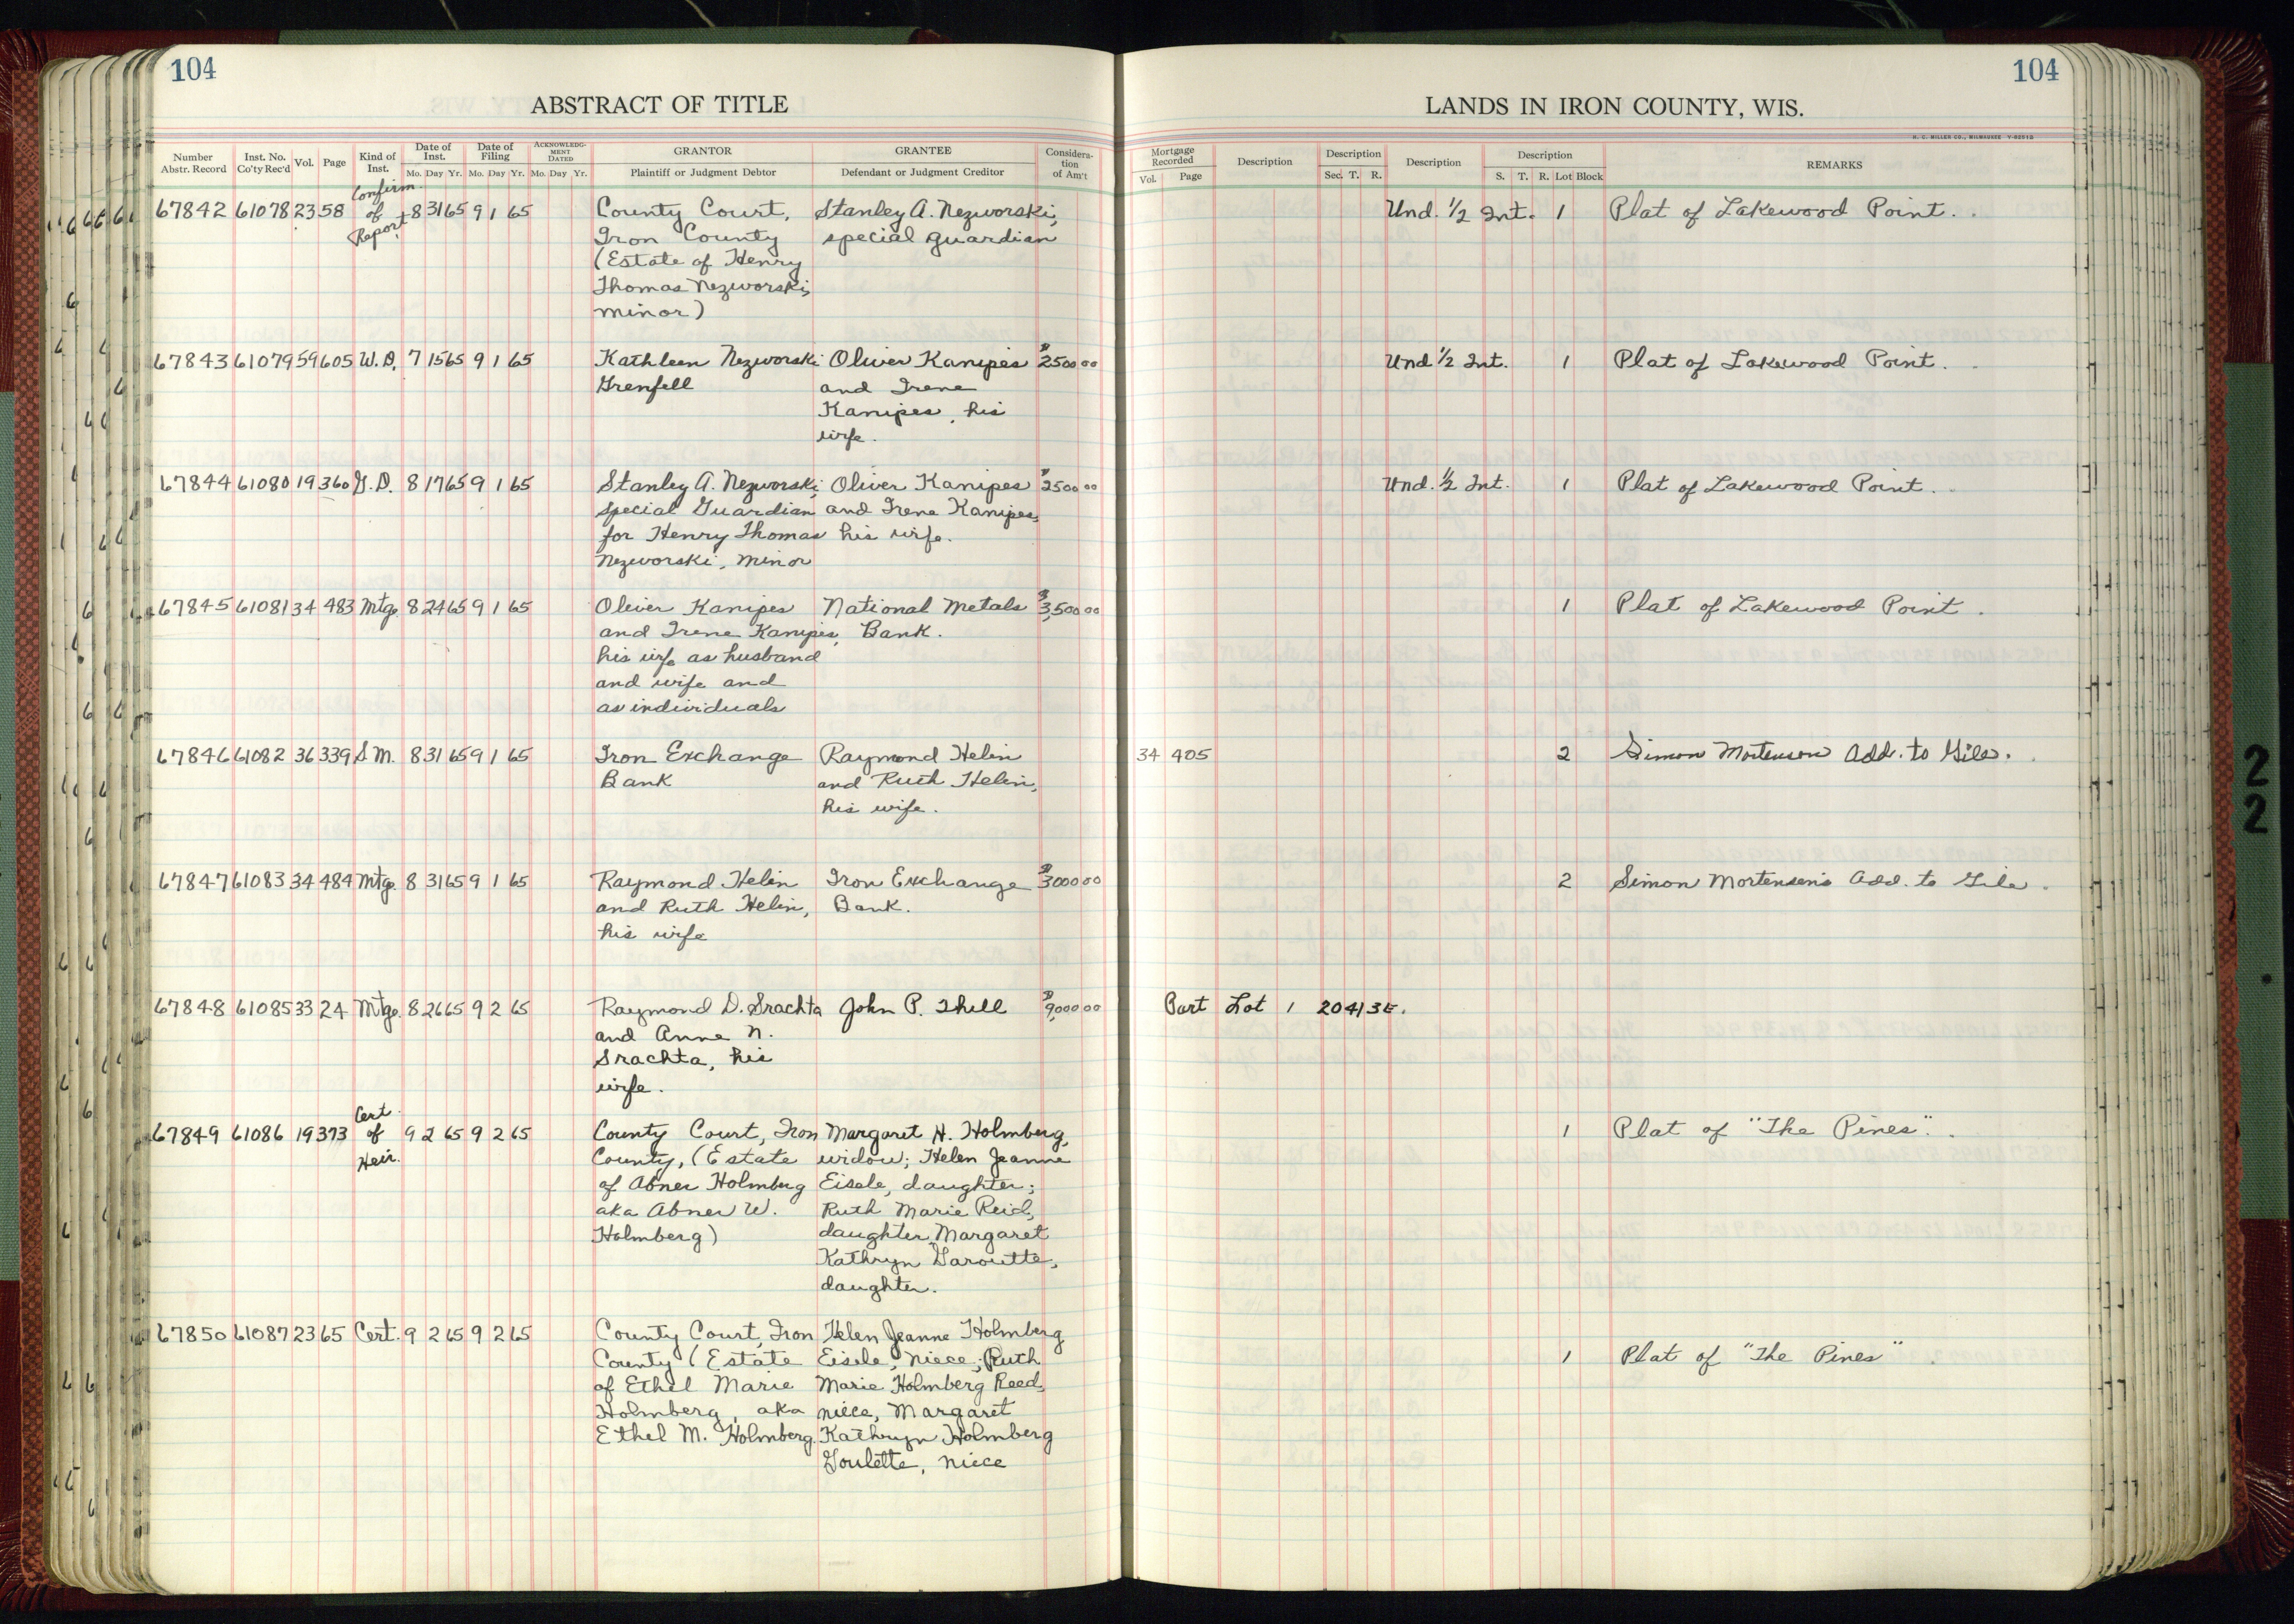 104
104
ABSTRACT OF TITLE
LANDS IN IRON COUNTY, WIS.
H. C. MILLER CO., MILWAUKEE
Number Abstr. Record
Inst. No. Co'ty Rec'd
Vol.
Page
Kind of Inst.
Date of Inst.
Mo. Day Yr.
Date of Filing
Mo. Day Yr.
ACKNOWLEDG-MENT DATED
Mo. Day Yr.
GRANTOR
Plaintiff or Judgment Debtor
GRANTEE
Defendant or Judgment Creditor
Considera-tion of Am't
Mortgage Recorded
Vol. Page
Description
Description
Sec. T. R.
Description
Description
S. T. R. Lot Block
REMARKS
67842 61078 23 58 Confirm. of Report 8 31 65 9 1 65 County Court, Stanley A. Nezworski, Und. 1/2 Int. 1 Plat of Lakewood Point.
Iron County special guardian
(Estate of Henry
Thomas Nezworski,
minor)
67843 61079 59 605 W.D. 7 15 65 9 1 65 Kathleen Nezworski Oliver Kanipes $2500 00 Und 1/2 Int. 1 Plat of Lakewood Point.
Grenfell and Irene
Kanipes, his
wife.
67844 61080 19 360 G.D. 8 17 65 9 1 65 Stanley A. Nezworski, Oliver Kanipes $2500 00 Und. 1/2 Int. 1 Plat of Lakewood Point.
special Guardian and Irene Kanipes,
for Henry Thomas his wife.
Nezworski, minor
67845 61081 34 483 Mtge. 8 24 65 9 1 65 Oliver Kanipes National Metals $3,500 00 1 Plat of Lakewood Point.
and Irene Kanipes, Bank.
his wife as husband
and wife and
as individuals
67846 61082 36 339 S.M. 8 31 65 9 1 65 Iron Exchange Raymond Helin 34 405 2 Simon Mortenson Add. to Gile.
Bank and Ruth Helin,
his wife.
67847 61083 34 484 Mtge. 8 31 65 9 1 65 Raymond Helin Iron Exchange $3000 00 2 Simon Mortensen's Add. to Gile.
and Ruth Helin, Bank.
his wife
67848 61085 33 24 Mtge. 8 26 65 9 2 65 Raymond D. Srachta John P. Thill $9,000 00 Part Lot 1 20 41 3E.
and Anne N.
Srachta, his
wife.
67849 61086 19 373 Cert. of Heir. 9 2 65 9 2 65 County Court, Iron Margaret H. Holmberg, 1 Plat of "The Pines".
County, (Estate widow; Helen Jeanne
of Abner Holmberg Eisele, daughter;
aka Abner W. Ruth Marie Reid,
Holmberg) daughter, Margaret
Kathryn Garoutte,
daughter.
67850 61087 23 65 Cert. 9 2 65 9 2 65 County Court, Iron Helen Jeanne Holmberg
County (Estate Eisele, niece; Ruth 1 Plat of "The Pines"
of Ethel Marie Marie Holmberg Reed,
Holmberg, aka niece, Margaret
Ethel M. Holmberg. Kathryn Holmberg
Goulette, niece
2
2